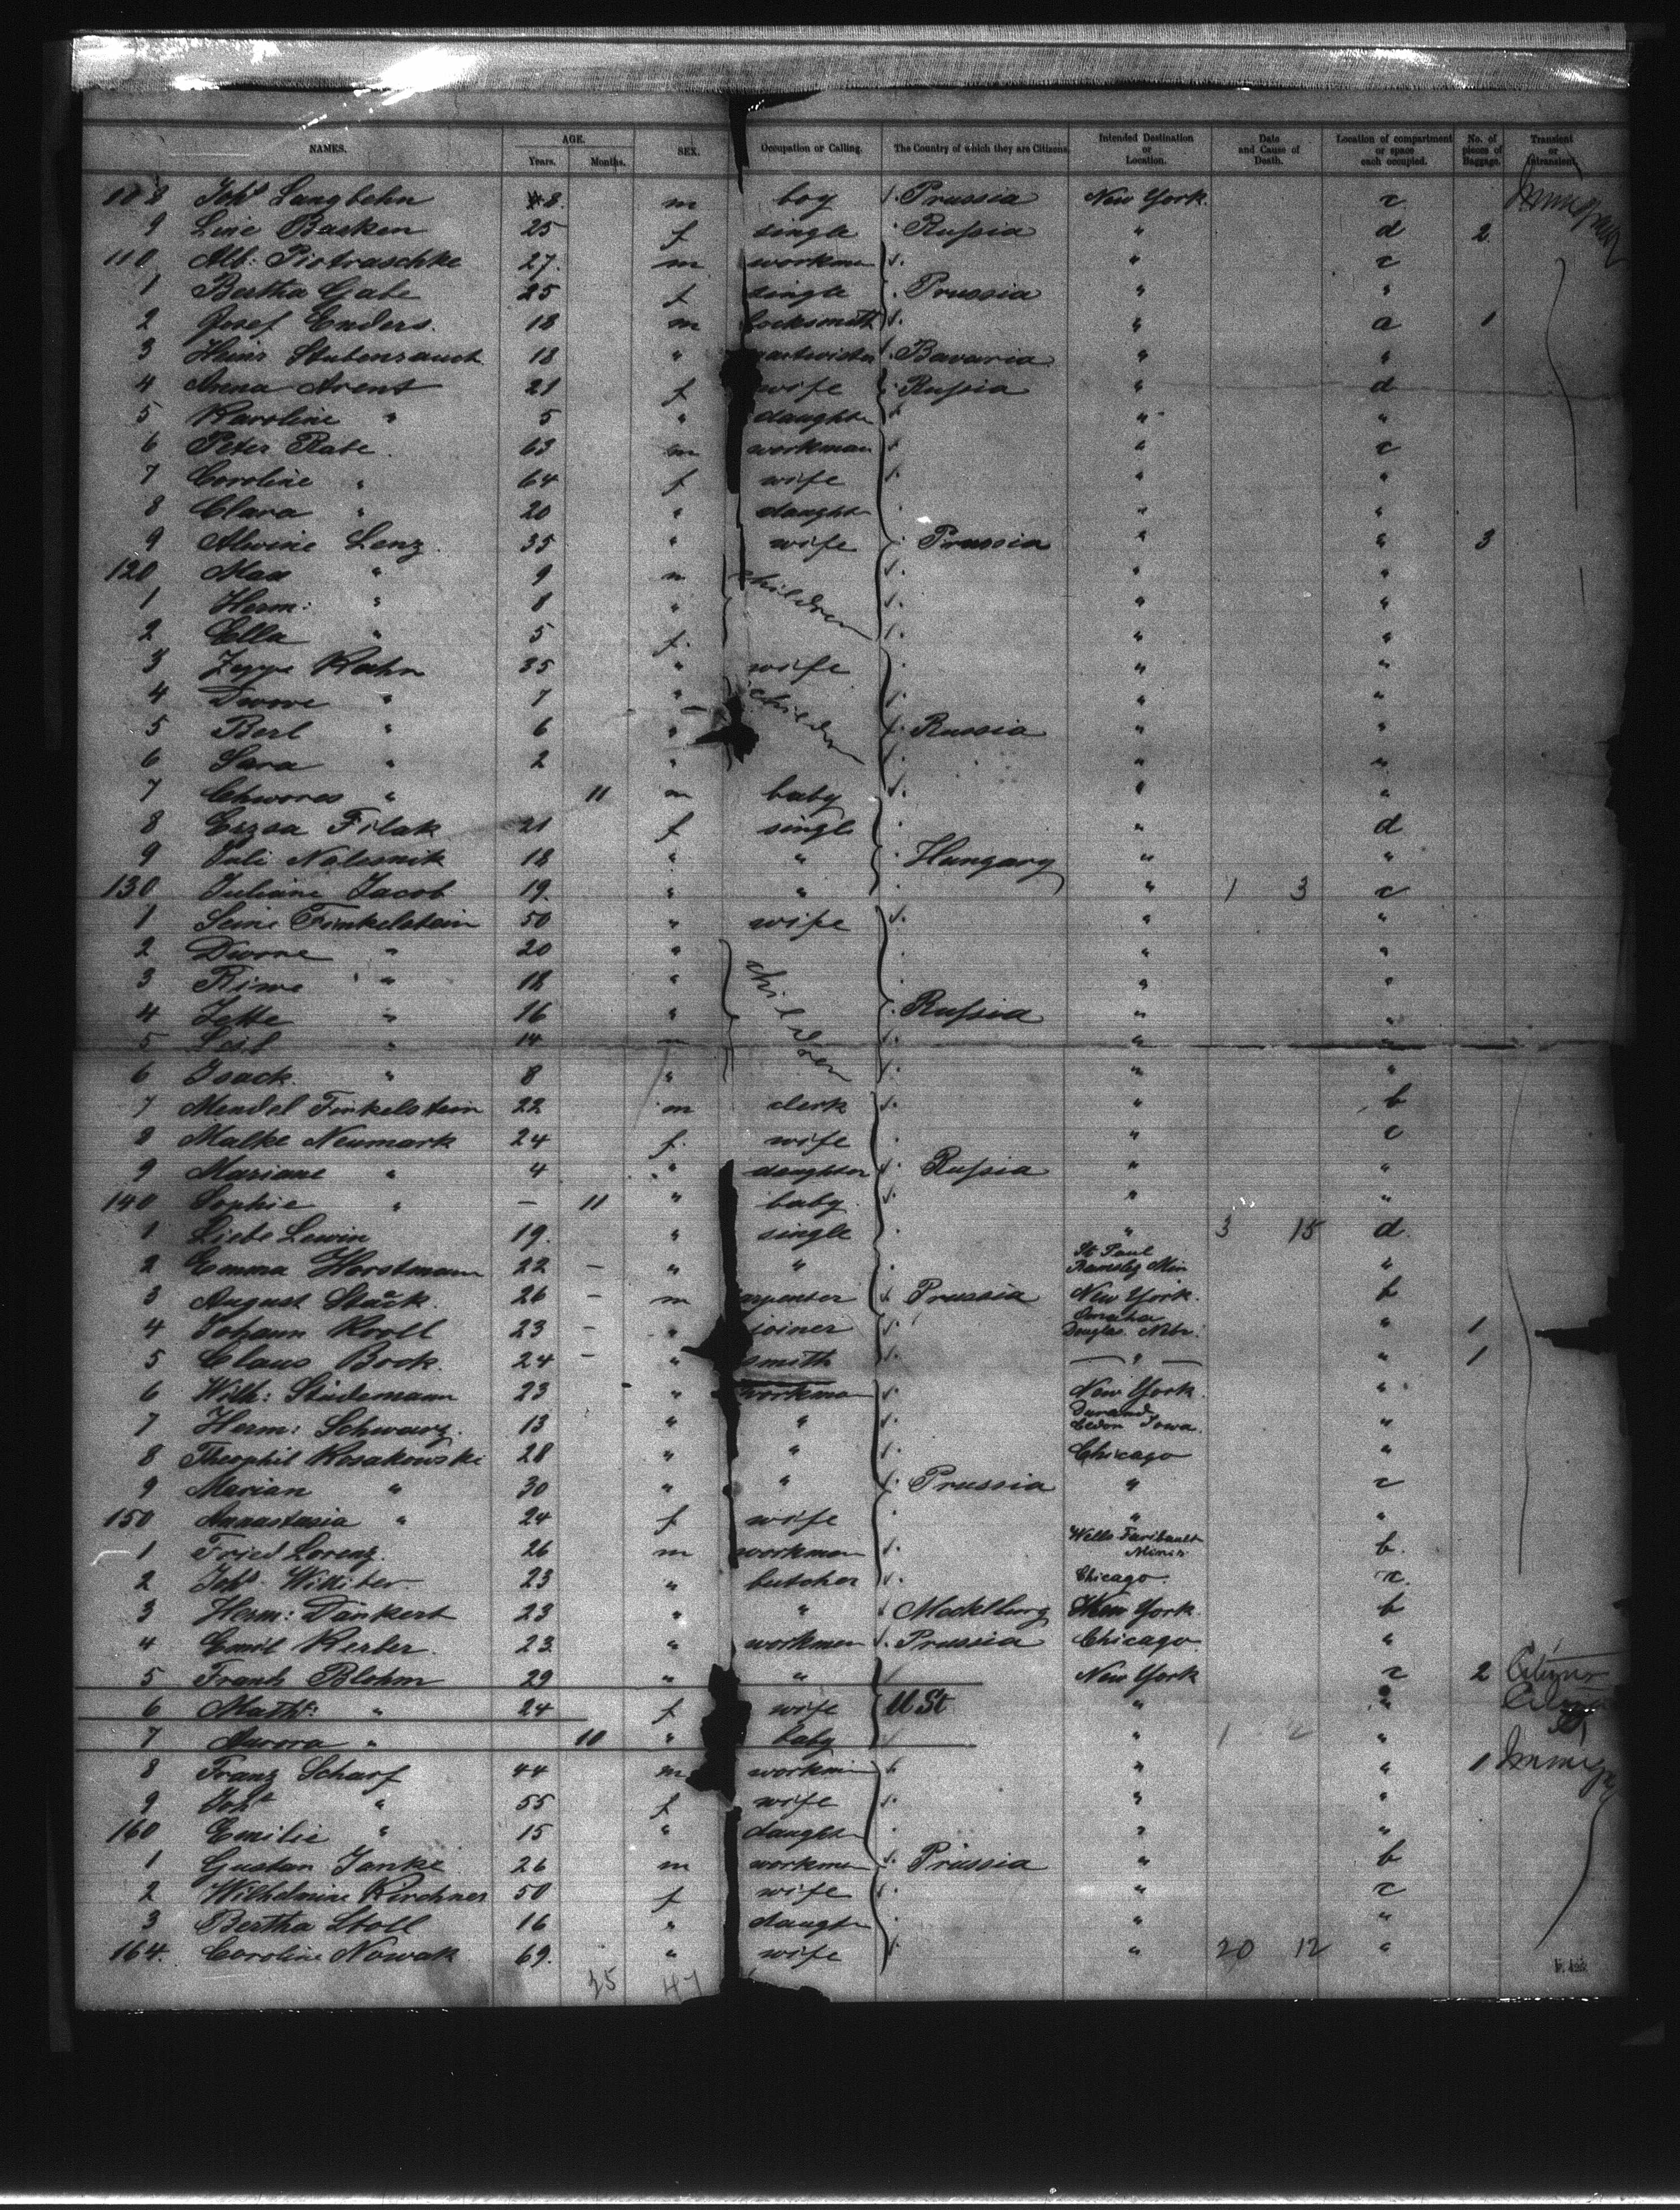 NAMES. AGE. Years. Months. SEX. Occupation or Calling. The Country of which they are Citizens. Intended Destination or Location. Date and Cause of Death. Location of compartment or space each occupied. No. of pieces of Baggage. Transient or Intransient.
108 Johs Langbehn 8 m boy Prussia New York. c
9 Line Basken 25 f single Russia " d 2
110 Alb: Piotraschke 27. m workman " c
1 Bertha Gabe 25 f single Prussia " "
2 Josef Enders. 18 m locksmith " a 1
3 Heinr Stubenrauch 18 " Bavaria " "
4 Anna Arent 21 f wife Russia " d
5 Karoline " 5 " daughter " "
6 Peter Rabe 63 m workman " c
7 Caroline " 64 f wife " "
8 Clara " 20 " daughter " "
9 Alwine Lenz 35 " wife Prussia " " 3
120 Max " 9 m children " "
1 Herm: " 8 " " "
2 Ella " 5 f. " "
3 Kahn 35 " wife " "
4 Dwore " 7 " children " "
5 Berl " 6 " Russia " "
6 Sara " 2 " " "
7 " 11 m baby " "
8 Erzsa Filak 21 f single " d
9 Juli Nalesnik 18 " " Hungary " "
130 Juliana Jacob 19. " " " 1 3 c
1 Seine Finkelstein 50 " wife " "
2 Dwore " 20 " children " "
3 Riwe " 18 " " "
4 Zette " 16 " Russia " "
5 " 14 m " "
6 Isack. " 8 " " "
7 Mendel Finkelstein 22 m clerk " b
8 Malke Neumark 24 f. wife " c
9 Mariane " 4 " daughter Russia " "
140 Sophie " — 11 " baby " "
1 Liebe Lewin 19. " single " 3 15 d.
2 Emma Horstmann 22 — " " St Paul Ramsley Min "
3 August Stack. 26 — m carpenter Prussia New York. b
4 Johann Kroll 23 — " joiner Omaha Douglas Nebr. " 1
5 Claus Bock. 24 — " smith — " — " 1
6 Wilh: Stüdemann 23 " workman New York. "
7 Herm: Schwarz. 13 " " Iowa. "
8 Theophil Kosakowski 28 " " Chicago "
9 Marian " 30 " " Prussia " c
150 Anastasia " 24 f wife " "
1 Fried Lorenz. 26 m workman Wells Faribault Minn. b.
2 Johs. 23 " butcher Chicago. c.
3 Herm: Dankert 23 " " Mecklburg New York b
4 Emil Kerber. 23 " workman Prussia Chicago "
5 Frank Blohm 29 " " New York c 2 Citizens
6 Mathe: " 24 f wife U St " " Citizen
7 Aurora " 10 " baby " 1 "
8 Franz Scharf 44 m workman " " 1
9 Johe " 55 f wife " "
160 Emilie " 15 " daughter " "
1 Gustav Janke 26 m workman Prussia " b
2 Wilhelmine Kirchner 50 f wife " c
3 Bertha Stoll 16 " daughter " "
164. Caroline Nowak 69. " wife " 20 12 "
35 47